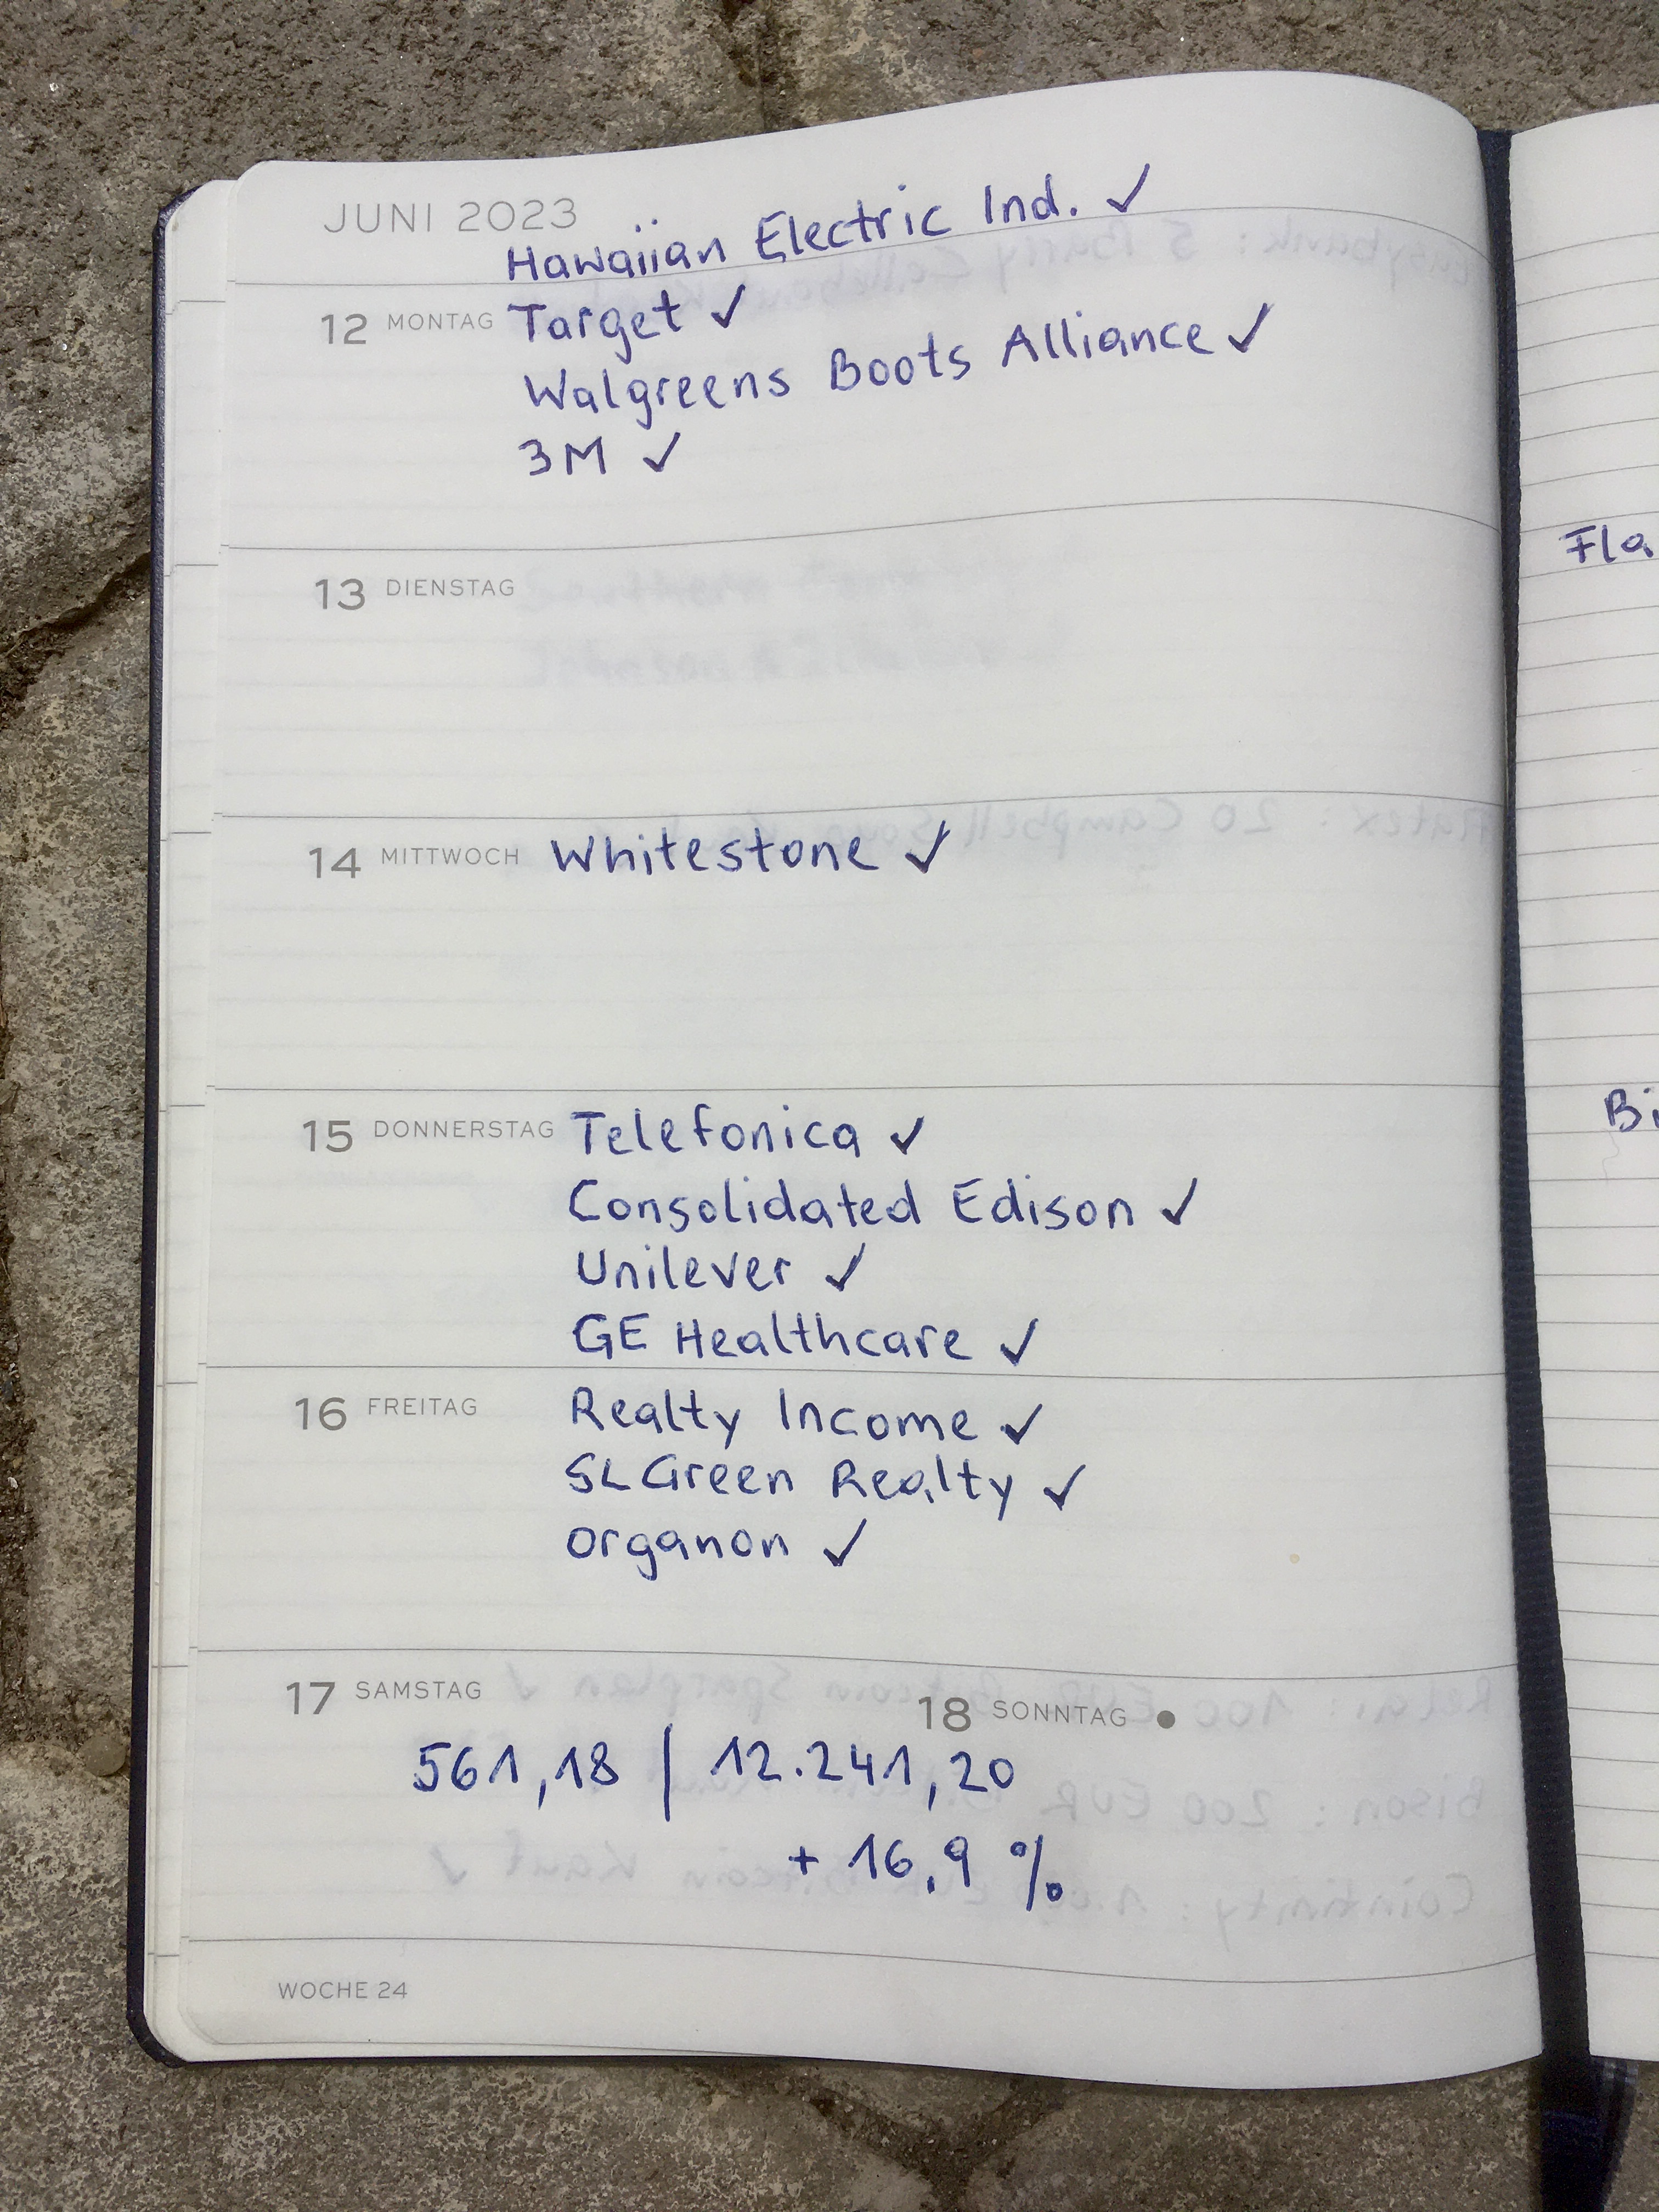 JUNI 2023
Hawaiian Electric Ind. ✓
12 MONTAG Target ✓
Walgreens Boots Alliance ✓
3M ✓
13 DIENSTAG
14 MITTWOCH Whitestone ✓
15 DONNERSTAG Telefonica ✓
Consolidated Edison ✓
Unilever ✓
GE Healthcare ✓
16 FREITAG Realty Income ✓
SL Green Realty ✓
Organon ✓
17 SAMSTAG 18 SONNTAG
561,18 | 12.241,20
+ 16,9 %
WOCHE 24
Fla
Bi